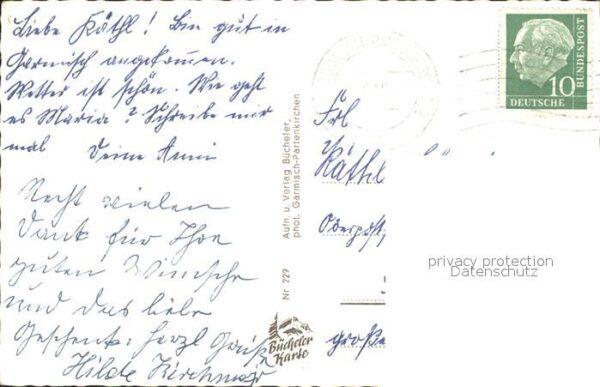 Liebe Käthl! Bin gut in
Garmisch angekommen.
Wetter ist schön. Wie geht
es Maria? Schreibe mir
mal Deine Anni
Recht vielen
Dank für Ihre
guten Wünsche
und das liebe
Geschenk. herzl Grüße
Hilde Kirchmayr
Aufn u. Verlag Bücheler,
phot. Garmisch-Partenkirchen
Nr 729
Bücheler
Karte
10
DEUTSCHE
BUNDESPOST
Frl
Käthl
Oberpost,
große
privacy protection
Datenschutz